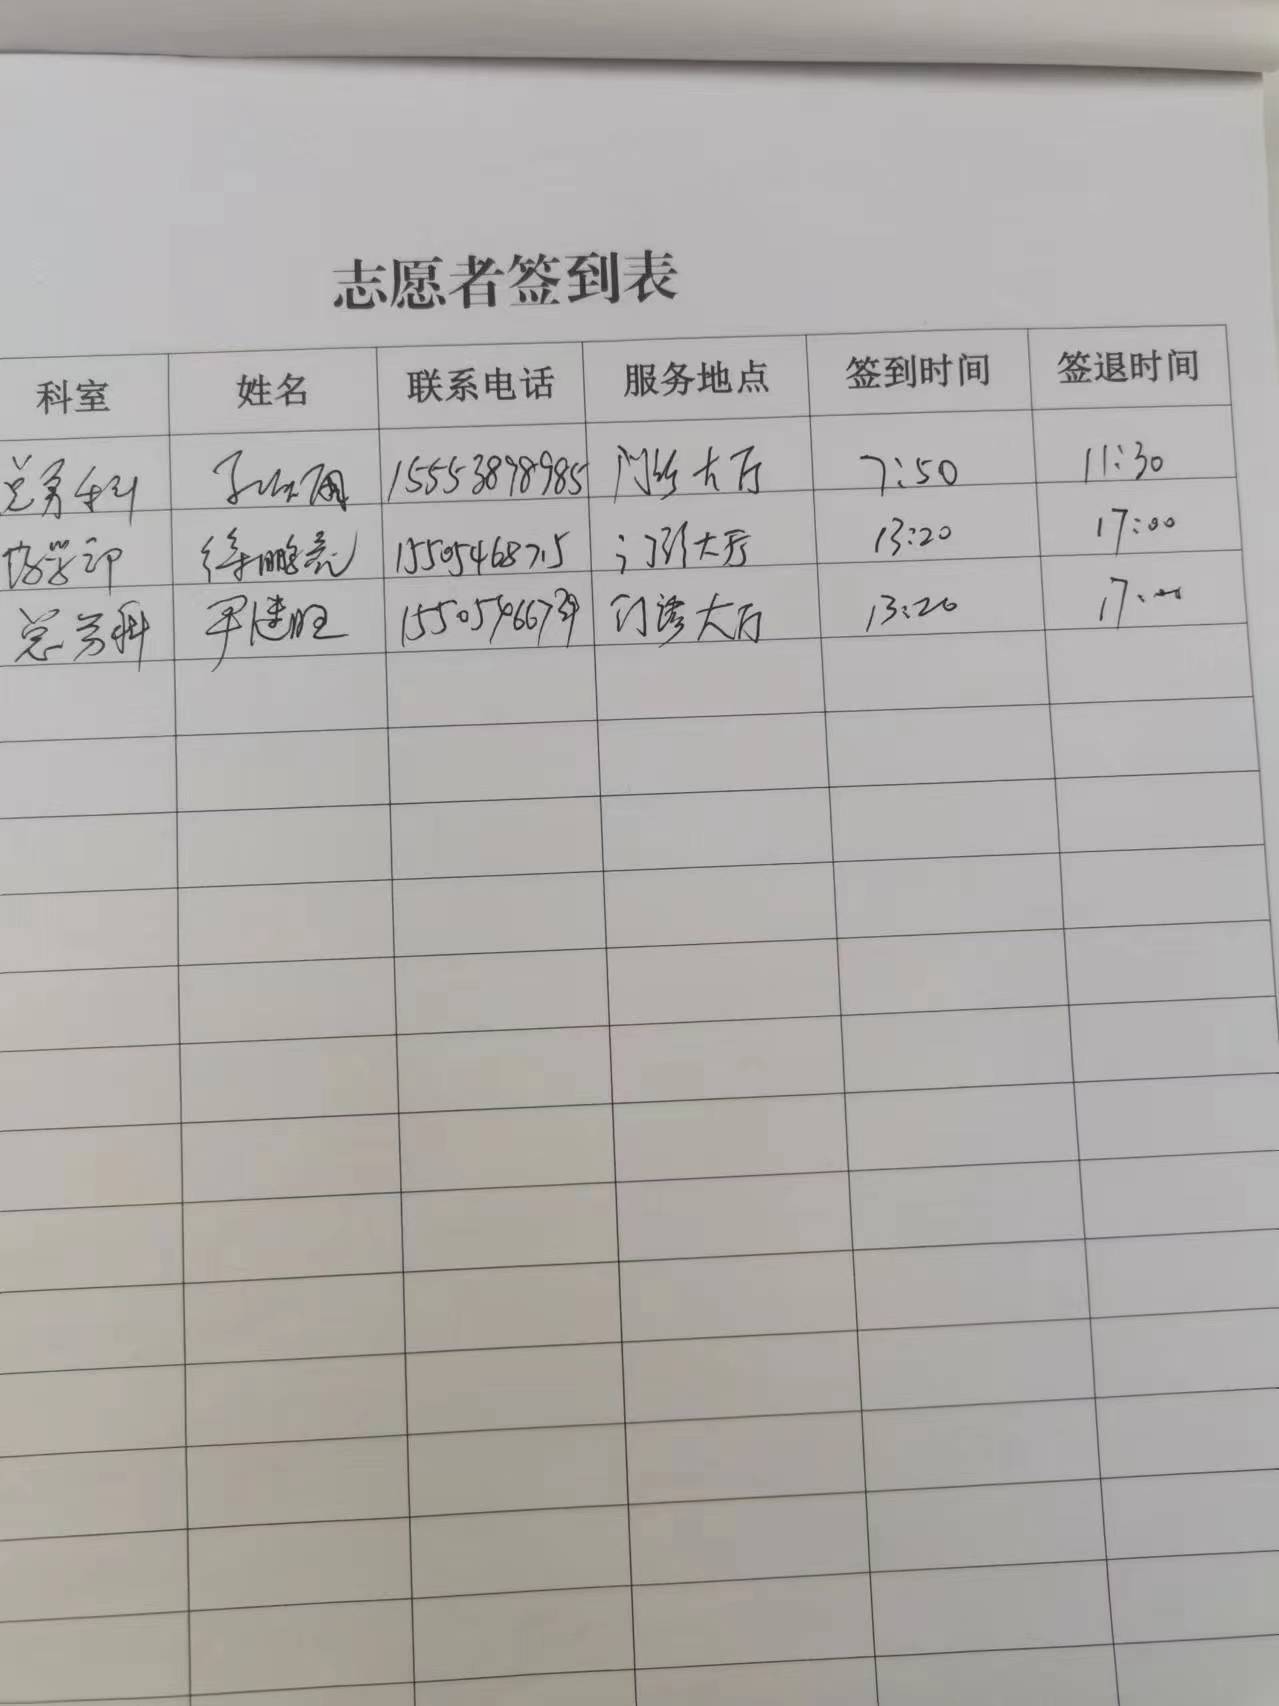 志愿者签到表
科室 姓名 联系电话 服务地点 签到时间 签退时间
总务科 15553898985 门诊大厅 7:50 11:30
徐鹏亮 15505468715 门诊大厅 13:20 17:00
总务科 尹建旺 门诊大厅 13:20 17:00